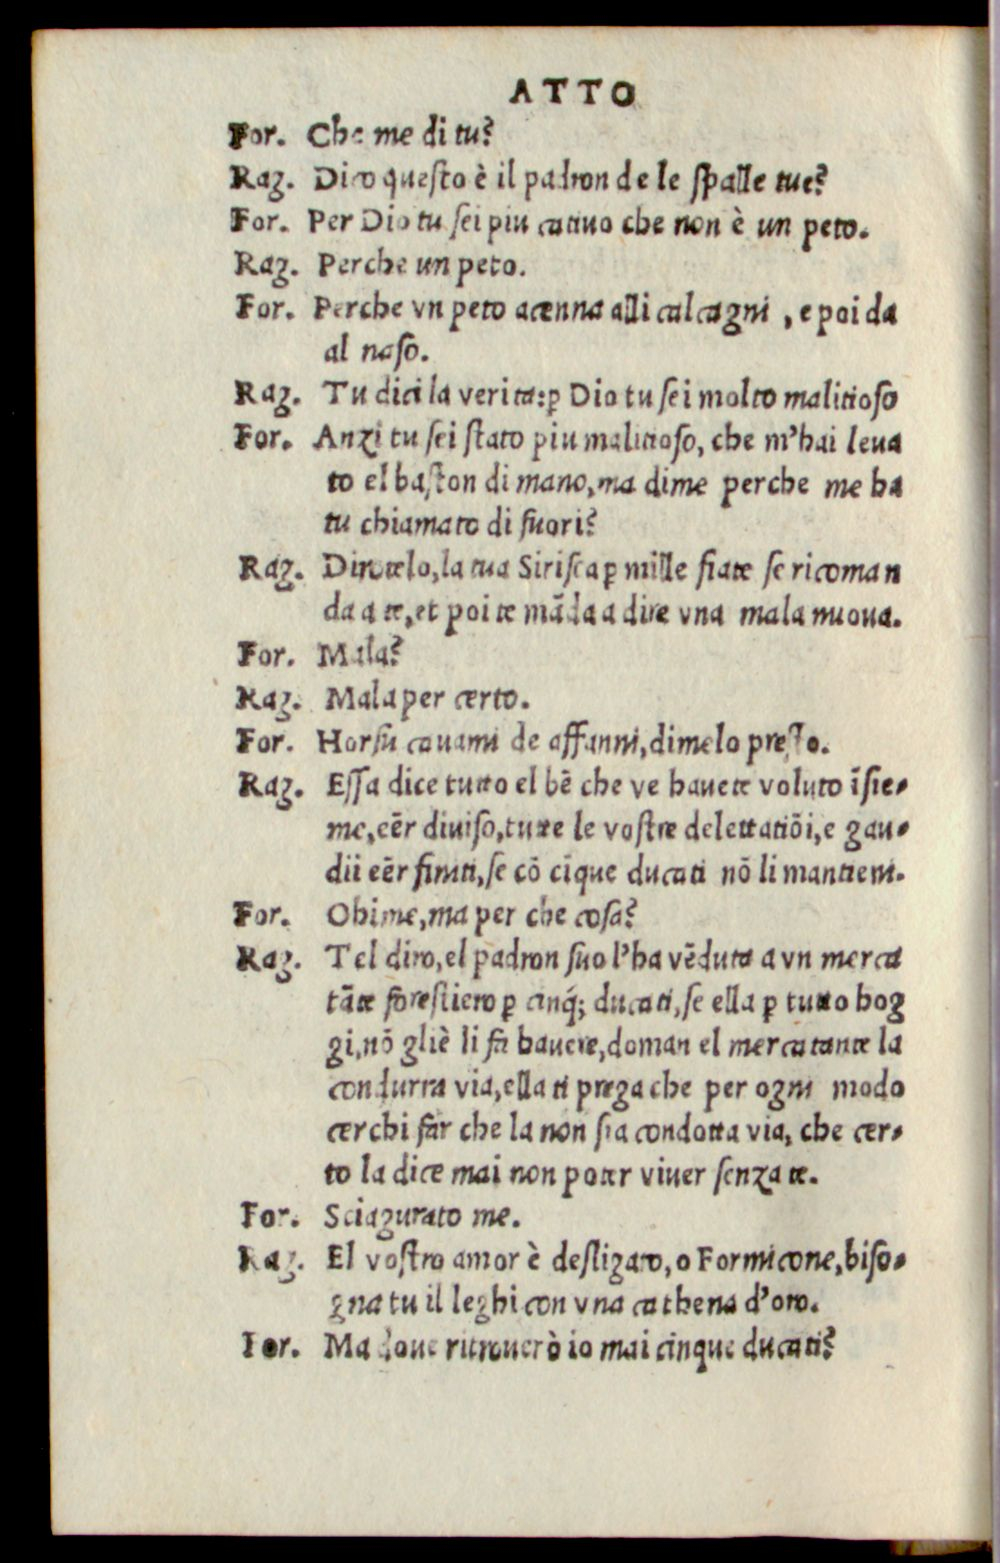 ATTO
For. Che me di tu?
Rag. Dico questo è il padron de le spalle tue?
For. Per Dio tu sei piu catiuo che non è un peto.
Rag. Perche un peto.
For. Perche vn peto acenna alli calcagni , e poi da
al naso.
Rag. Tu dici la verita:ꝑ Dio tu sei molto malitioso
For. Anzi tu sei stato piu malitioso, che m'hai leua
to el baston di mano, ma dime perche me ha
tu chiamato di fuori?
Rag. Dirotelo, la tua Sirisca ꝑ mille fiate se ricoman
da a te, et poi te mãda a dire vna mala nuoua.
For. Mala?
Rag. Mala per certo.
For. Horsu cauami de affanni, dimelo presto.
Rag. Essa dice tutto el bẽ che ve hauete voluto ĩsie-
me, eẽr diuiso, tutte le vostre delettatiõi, e gau-
dii eẽr finiti, se cõ cĩque ducati nõ li mantieni.
For. Ohime, ma per che cosa?
Rag. Tel diro, el padron suo l'ha vẽduta a vn merca
tãte forestiero ꝑ cinq́; ducati, se ella ꝑ tutto hog
gi, nõ gliè li fa hauere, doman el mercatante la
condurra via, ella ti prega che per ogni modo
cerchi far che la non sia condotta via, che cer-
to la dice mai non poter viuer senza te.
For. Sciagurato me.
Rag. El vostro amor è desligato, o Formicone, biso-
gna tu il leghi con vna cathena d'oro.
For. Ma doue ritrouerò io mai cinque ducati?